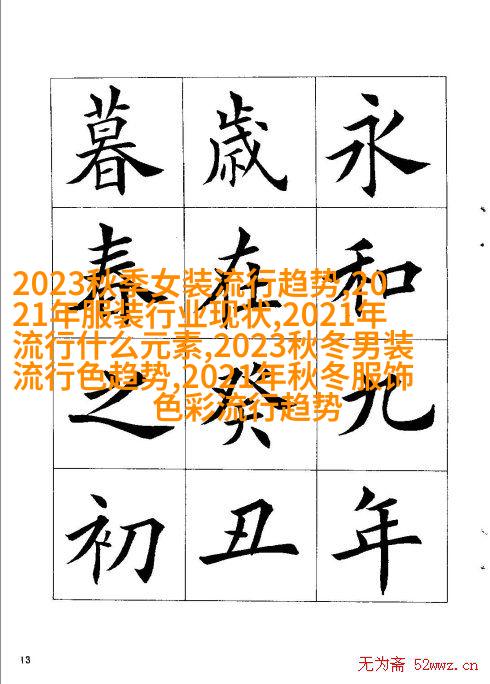 永和九年
歲在癸丑
暮春之初
2023秋季女装流行趋势,20
21年服装行业现状,2021年
流行什么元素,2023秋冬男装
流行色趋势,2021年秋冬服饰
色彩流行趋势
13
无为斋 52wwz.cn